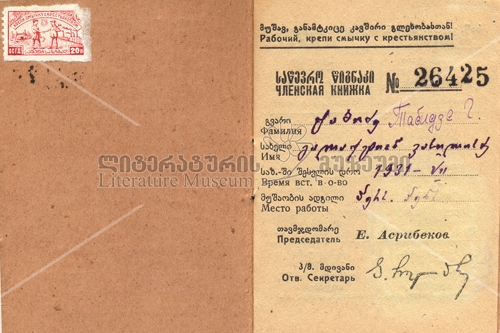 მუშავ, განამტკიცე კავშირი გლეხობასთან!
Рабочий, крепи смычку с крестьянством!
საწევრო წიგნაკი
ЧЛЕНСКАЯ КНИЖКА
№ 26425
გვარი
Фамилия
ტაბიძე Табидзе Г.
სახელი
Имя
გალაკტიონ
ლიტერატურის მუზეუმი
Literature Museum
საზ.-ში შესვლის დრო
Время вст. в о-во
1931
მუშაობის ადგილი
Место работы
თავმჯდომარე
Председатель
Е. Асрибеков
პ/მ. მდივანი
Отв. Секретарь
20к